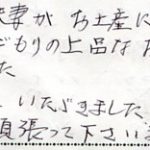 妻が お土産に
どもりの上品な
た
いただきました
頑張って下さい